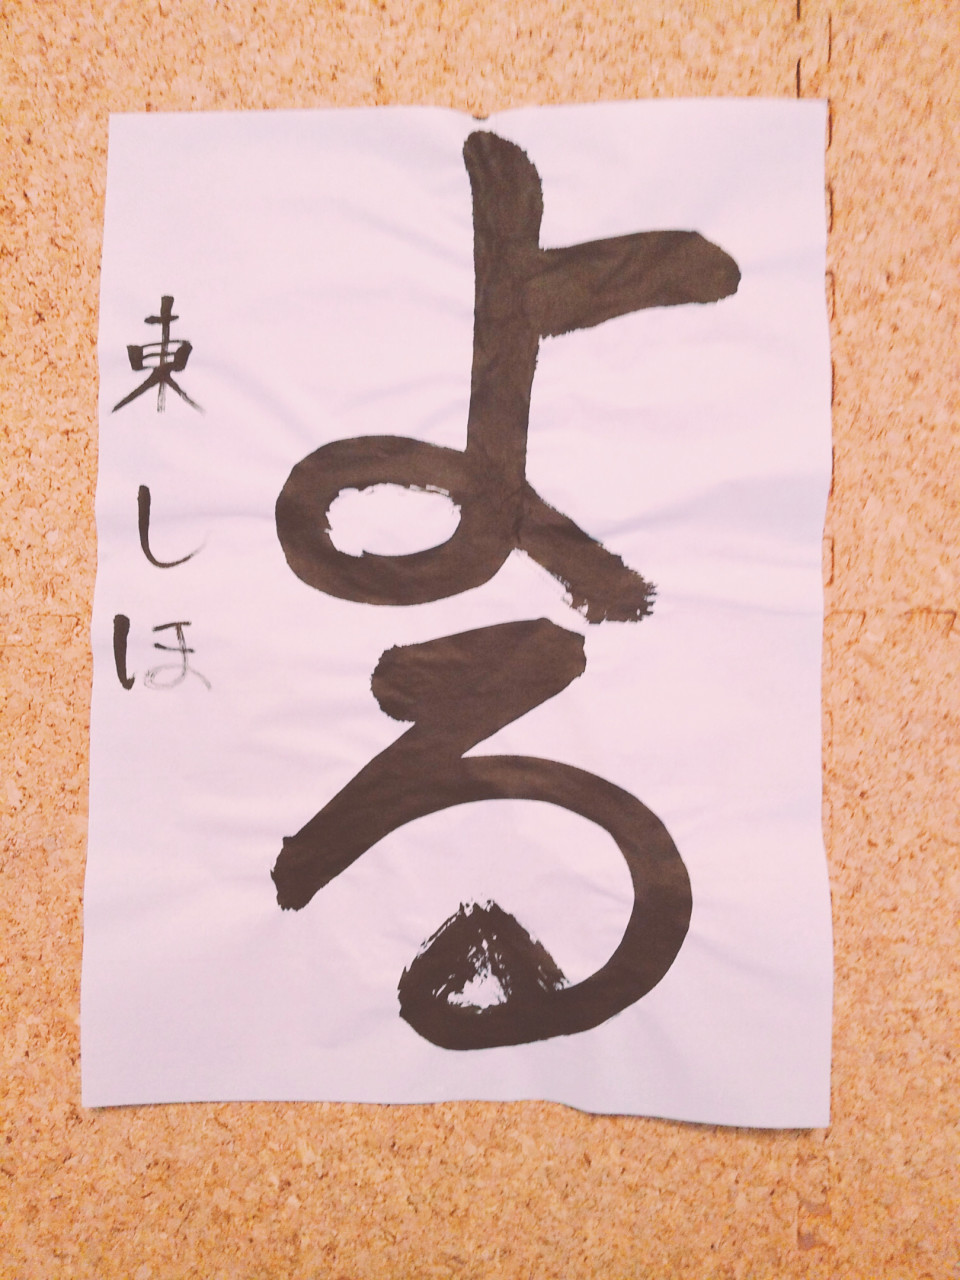 よる
東しほ